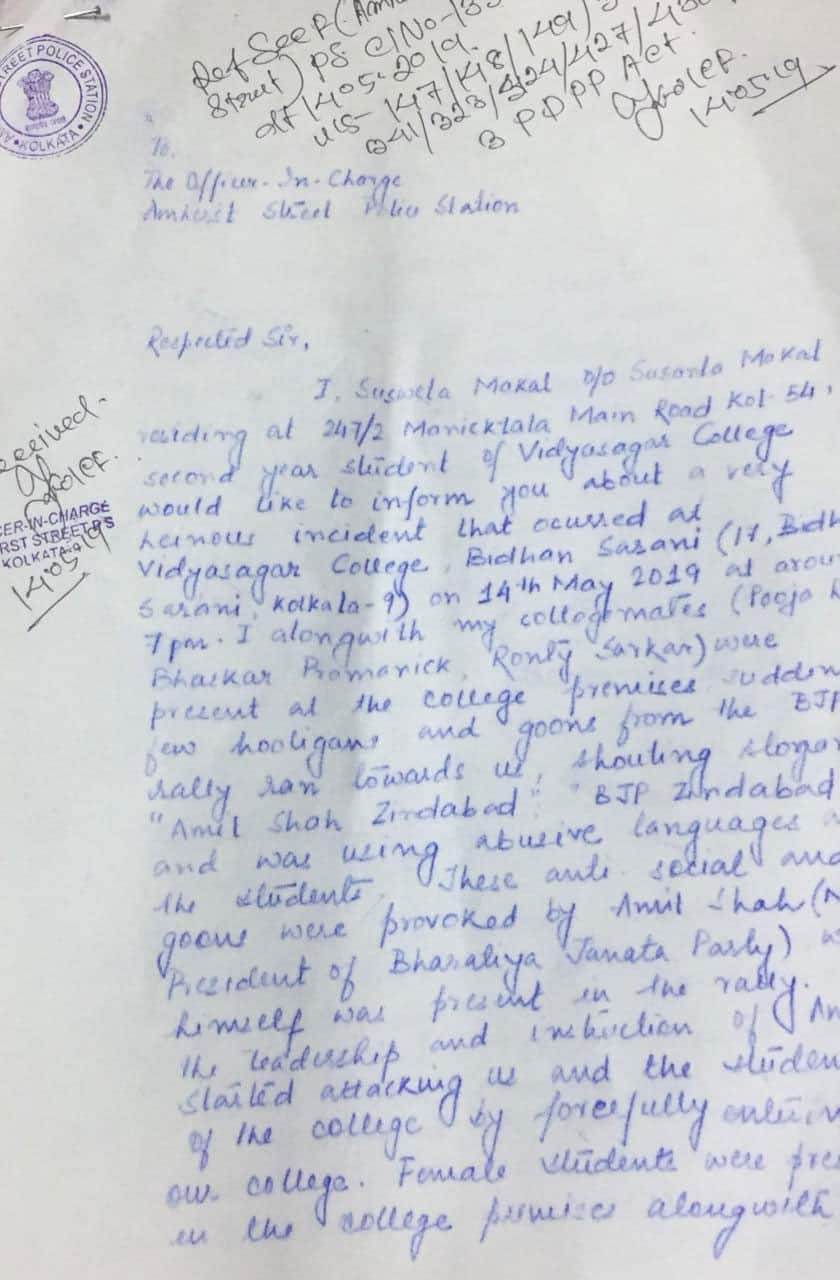 STREET POLICE STATION
KOLKATA
Ref See P (Amh
Street) PS C/No-13
dt 14.05.2019.
u/s-147/148/149/
341/323/324/427/
3 PDPP Act.
14.05.19
To,
The Officer-In-Charge
Amhurst Street Police Station
Respected Sir,
I, Mokal D/o Susanta Mokal
residing at 247/2 Manicktala Main Road Kol-54,
second year student of Vidyasagar College
would like to inform you about a very
heinous incident that ocurred at
Vidyasagar College, Bidhan Sarani (17, Bidh
Sarani, Kolkata-9) on 14th May 2019 at arou
7pm. I alongwith my collegemates (Pooja
Bhaskar Pramanick, Sarkar) were
present at the college premises sudden
few hooligans and goons from the BJP
rally ran towards us, shouting slogan
"Amit Shah Zindabad" "BJP Zindabad
and was using abusive languages a
the students. These anti social and
goons were provoked by Amit Shah (N
President of Bharatiya Janata Party) w
himself was present in the rally.
the leadership and instruction of Am
started attacking us and the studen
of the college by forcefully enterin
our college. Female students were pre
in the college premises alongwith
eceived-
CER-IN-CHARGE
RST STREET P.S
KOLKATA-9
14.05.19